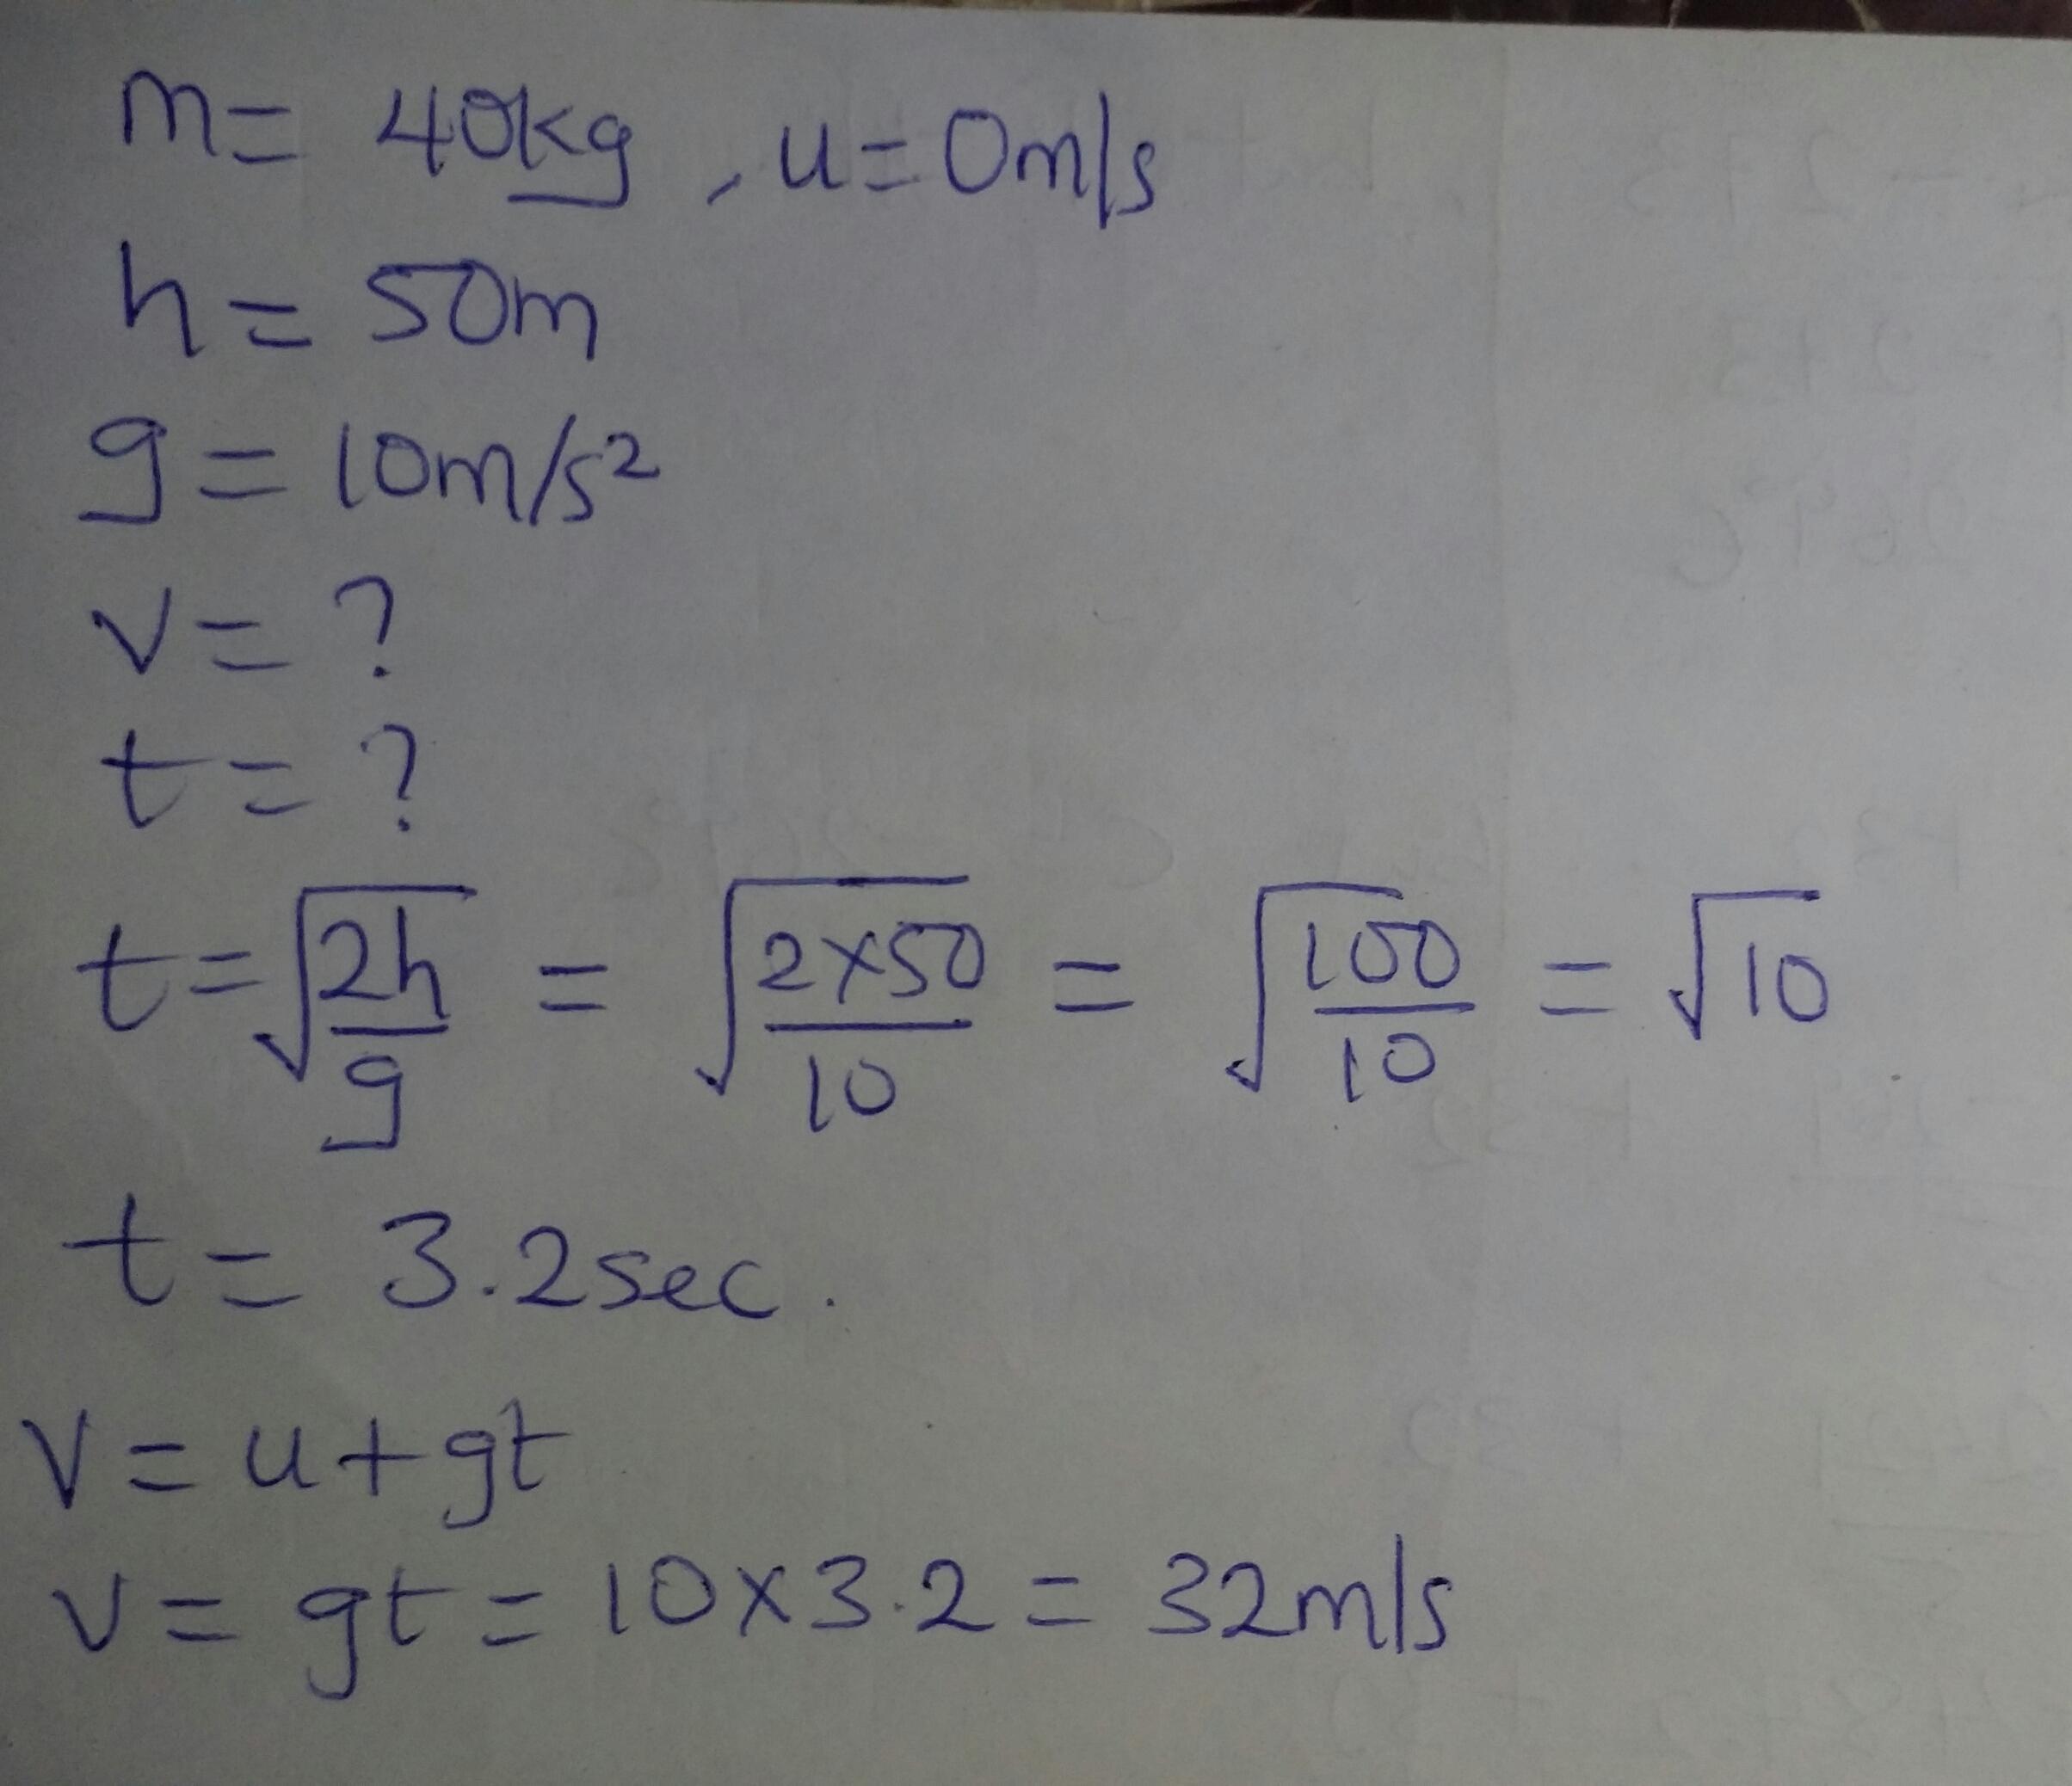 m = 40kg , u = 0m/s
h = 50m
g = 10m/s²
v = ?
t = ?
t = √(2h/g) = √(2×50/10) = √(100/10) = √10
t = 3.2sec.
v = u + gt
v = gt = 10×3.2 = 32m/s